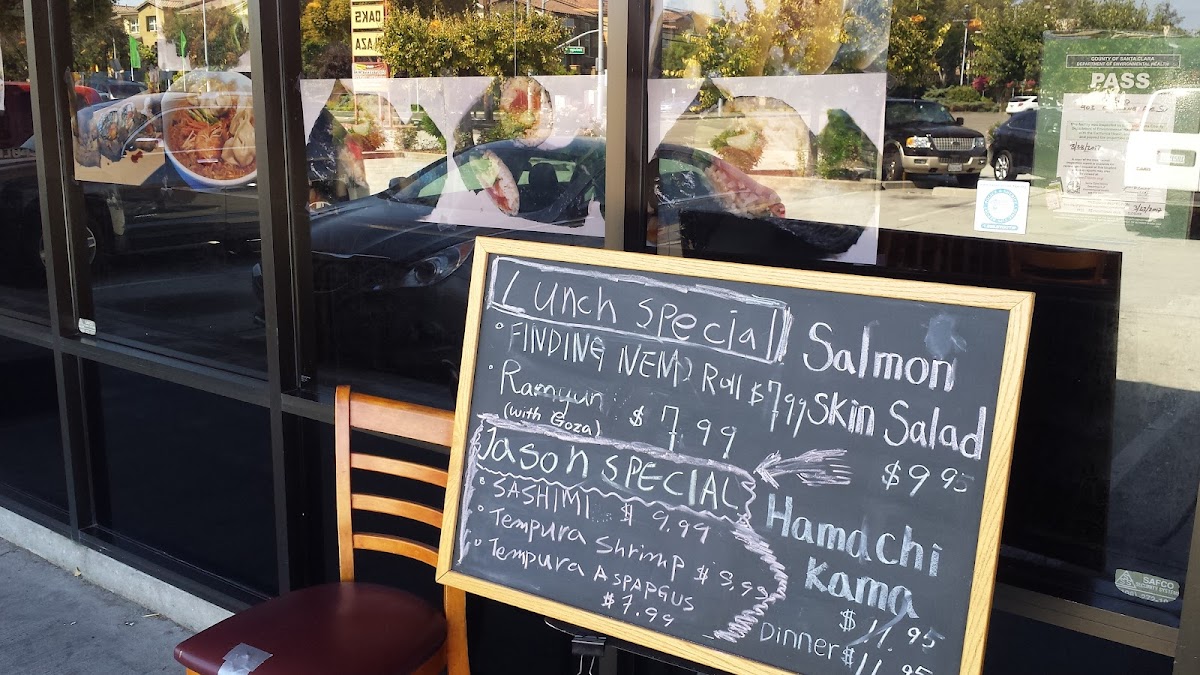 OAKS
PLAZA
COUNTY OF SANTA CLARA
DEPARTMENT OF ENVIRONMENTAL HEALTH
PASS
Lunch Special
• FINDING NEMO Roll $7.99
• Ramyun $ 7.99
(with Goza)
Jason SPECIAL
• SASHIMI $ 9.99
• Tempura Shrimp $ 9.99
• Tempura ASPAPGUS
$ 7.99
Salmon
Skin Salad
$ 9.95
Hamachi
Kama
$ 11.95
Dinner $11.95
SAFCO